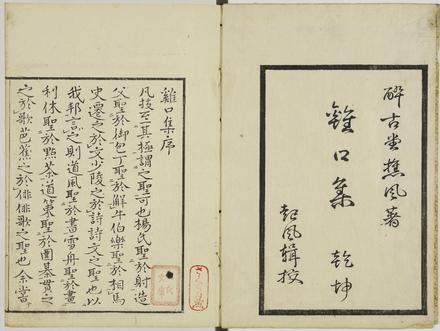 酔古堂蕉風著
雞口集 乾坤
起風輯校
雞口集序
凡技至其極謂之聖可也楊氏聖於射造
父聖於御包丁聖於鮮牛伯樂聖於相馬
史遷之於文少陵之於詩詩文之聖也以
我邦言之則道風聖於書雪舟聖於畫
利休聖於點茶道策聖於圍棊貫之
之於歌芭蕉之於俳俳歌之聖也余嘗